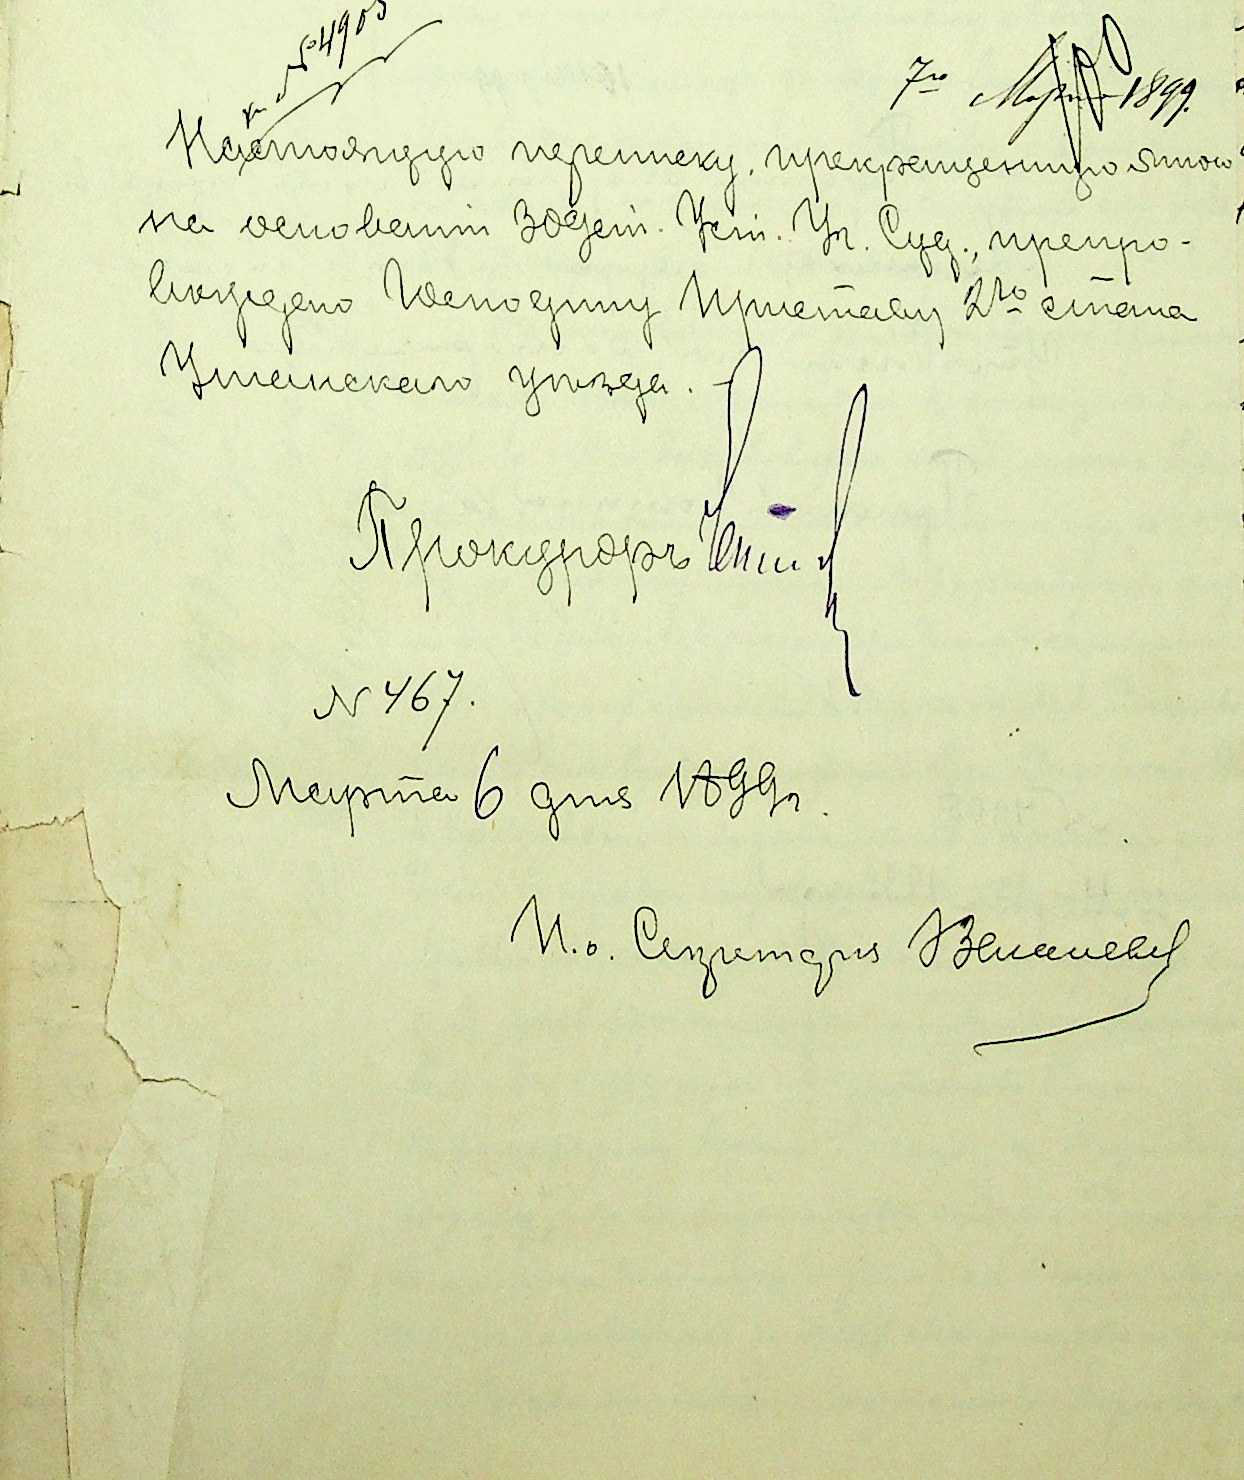 к. д. № 4903
7го Марта 1899.
Настоящую переписку, прекращенную мною
на основанiи 309 ст. Уст. Уг. Суд., препро-
вождаю Господину Приставу 2го стана
Уманскаго уѣзда.
Прокуроръ
№ 467.
Марта 6 дня 1899 г.
И. о. Секретаря